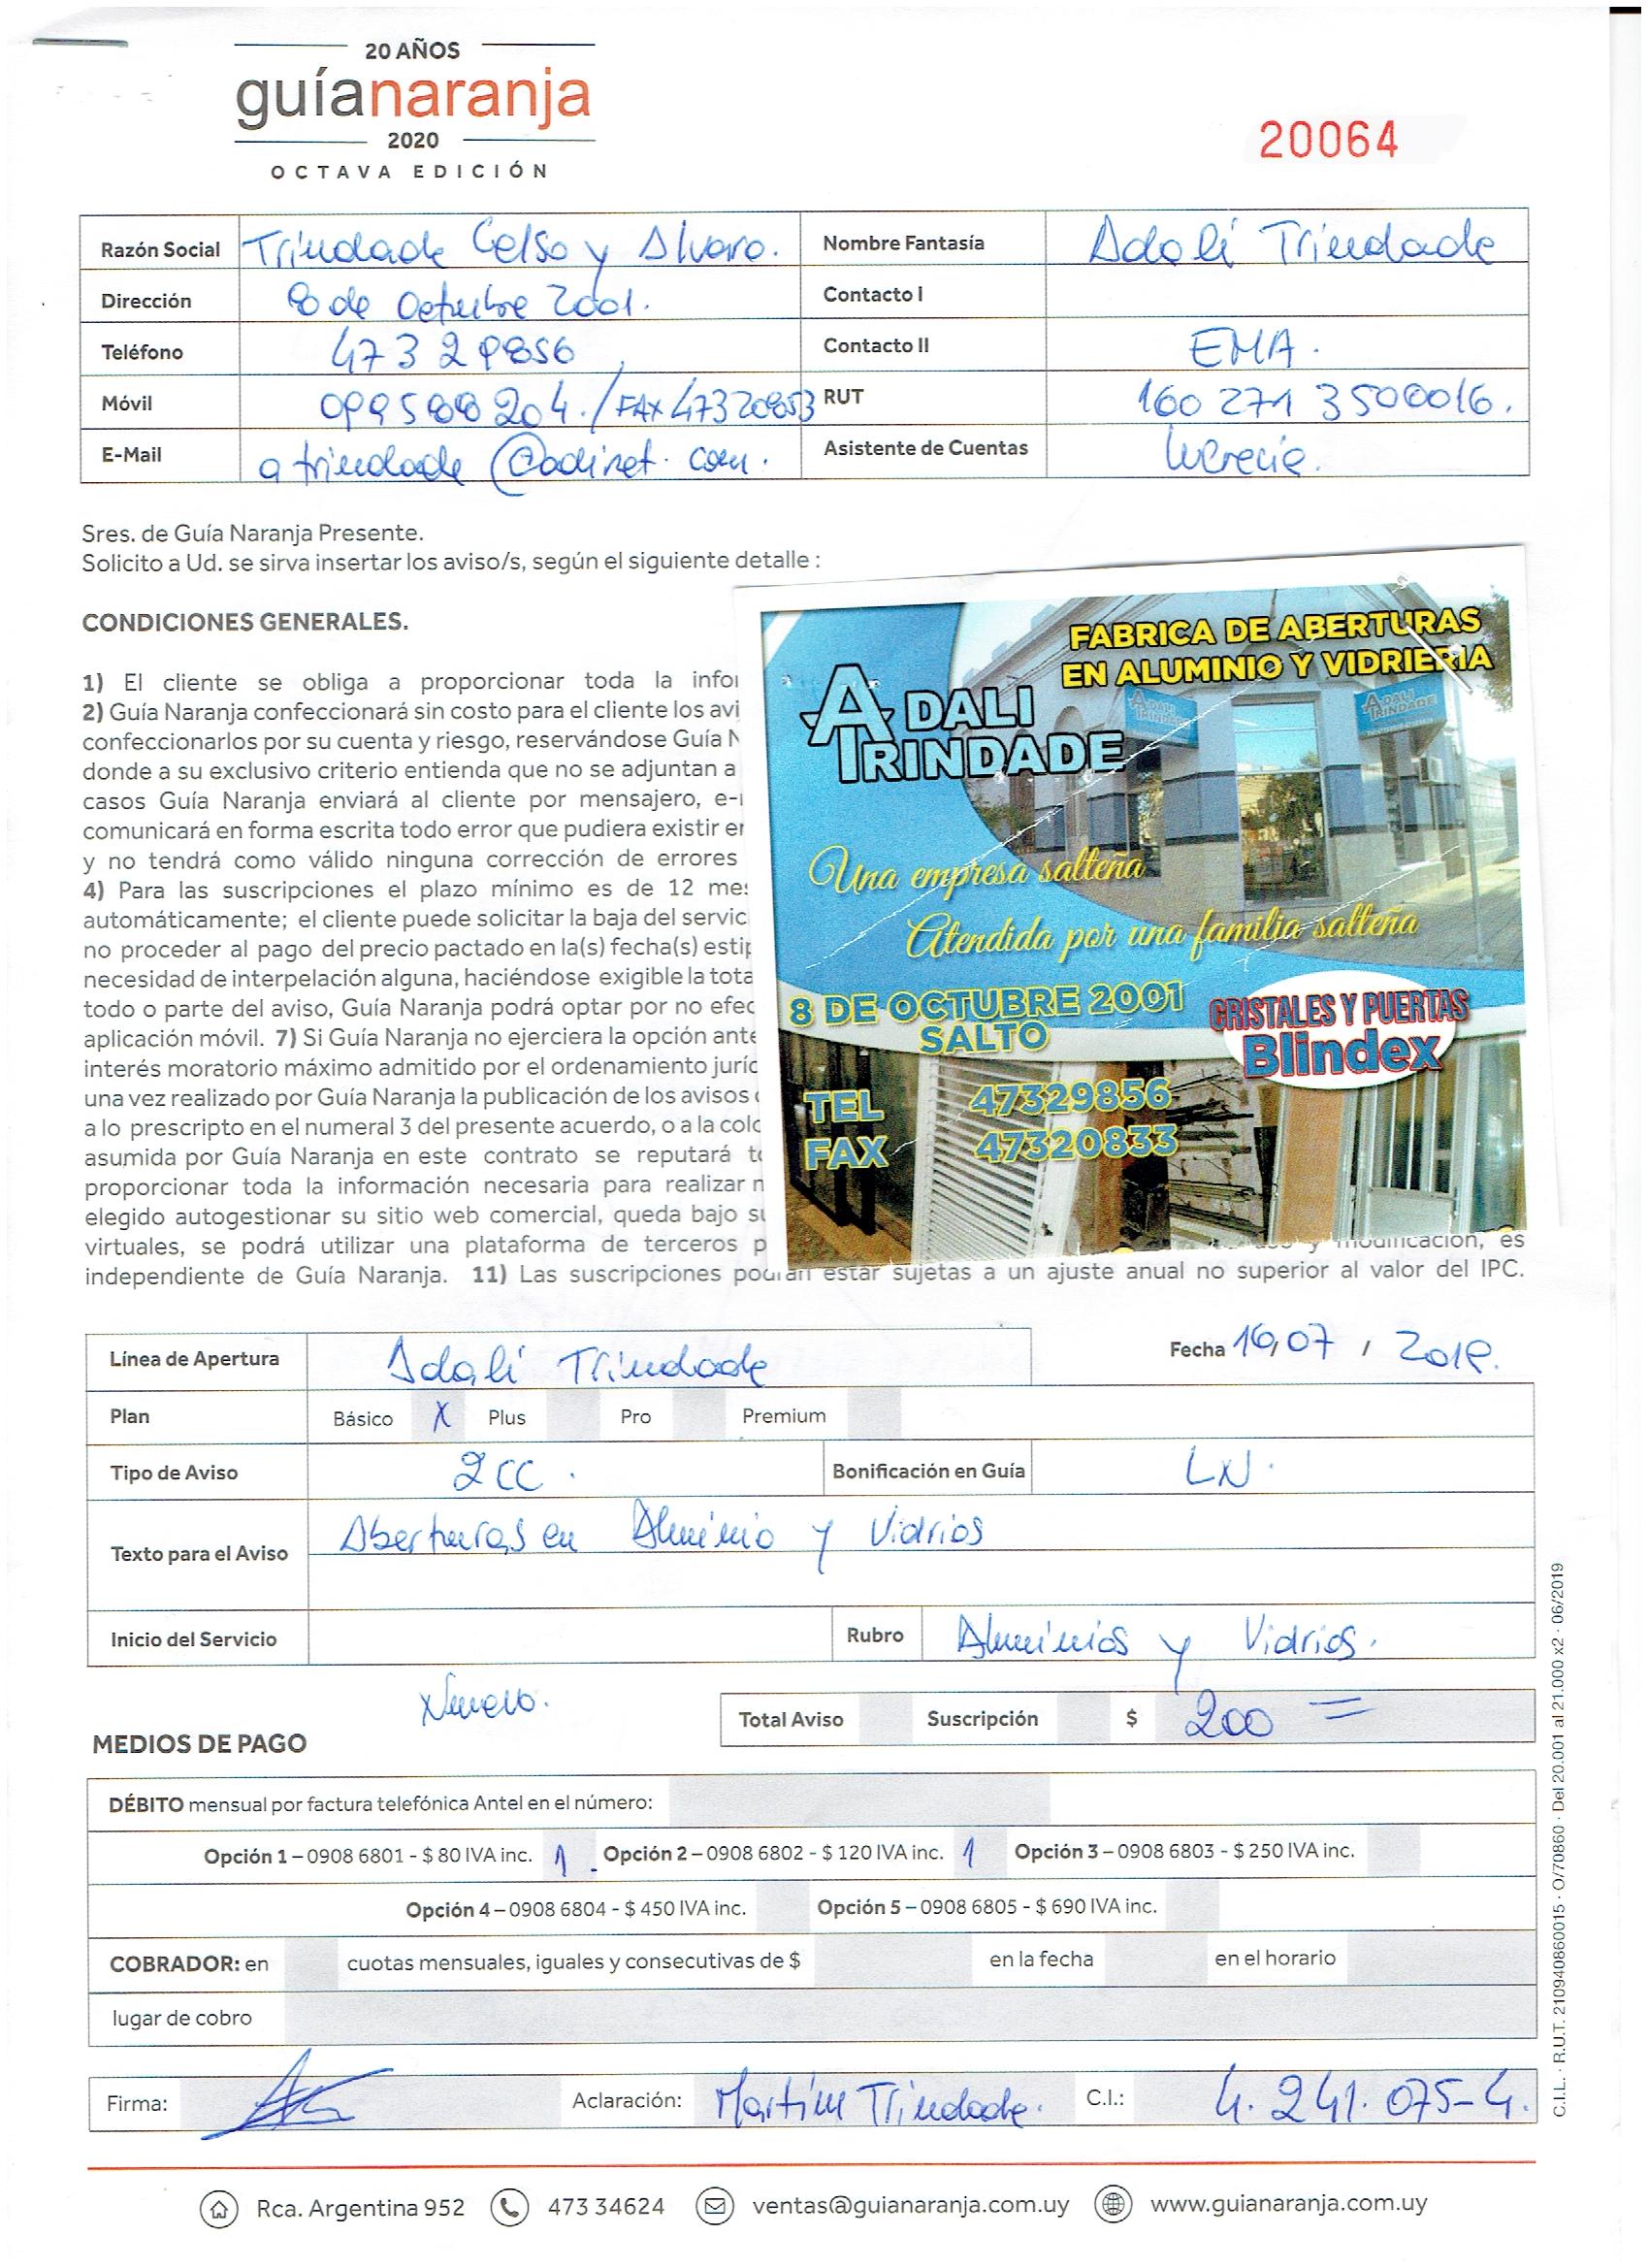 20 AÑOS
guíanaranja
2020
OCTAVA EDICIÓN
20064
Razón Social Trindade Celso y Alvaro. Nombre Fantasía Adalí Trindade
Dirección 8 de Octubre 2001. Contacto I
Teléfono 473 29856 Contacto II EMA.
Móvil 099588204. / FAX 47320853 RUT 160 271 3500016.
E-Mail atrindade@adinet.com. Asistente de Cuentas Lucrecia.
Sres. de Guía Naranja Presente.
Solicito a Ud. se sirva insertar los aviso/s, según el siguiente detalle :
CONDICIONES GENERALES.
1) El cliente se obliga a proporcionar toda la
2) Guía Naranja confeccionará sin costo para el cliente los
confeccionarlos por su cuenta y riesgo, reservándose Guía
donde a su exclusivo criterio entienda que no se adjuntan a
casos Guía Naranja enviará al cliente por mensajero,
comunicará en forma escrita todo error que pudiera existir
y no tendrá como válido ninguna corrección de errores
4) Para las suscripciones el plazo mínimo es de 12
automáticamente; el cliente puede solicitar la baja del
no proceder al pago del precio pactado en la(s) fecha(s)
necesidad de interpelación alguna, haciéndose exigible la
todo o parte del aviso, Guía Naranja podrá optar por no
aplicación móvil. 7) Si Guía Naranja no ejerciera la opción
interés moratorio máximo admitido por el ordenamiento
una vez realizado por Guía Naranja la publicación de los avisos
a lo prescripto en el numeral 3 del presente acuerdo, o a la
asumida por Guía Naranja en este contrato se reputará
proporcionar toda la información necesaria para realizar
elegido autogestionar su sitio web comercial, queda bajo
virtuales, se podrá utilizar una plataforma de terceros y modificación, es
independiente de Guía Naranja. 11) Las suscripciones podrán estar sujetas a un ajuste anual no superior al valor del IPC.
FABRICA DE ABERTURAS
EN ALUMINIO Y VIDRIERIA
ADALI
TRINDADE
ADALI
TRINDADE
ADALI
TRINDADE
Una empresa salteña
Atendida por una familia salteña
8 DE OCTUBRE 2001
SALTO
CRISTALES Y PUERTAS
Blindex
TEL 47329856
FAX 47320833
Línea de Apertura Adalí Trindade Fecha 16/07 / 2019.
Plan Básico X Plus Pro Premium
Tipo de Aviso 2CC. Bonificación en Guía LN.
Texto para el Aviso Aberturas en Aluminio y Vidrios
Inicio del Servicio Rubro Aluminios y Vidrios.
Total Aviso Suscripción $ 200 =
MEDIOS DE PAGO
DÉBITO mensual por factura telefónica Antel en el número:
Opción 1 – 0908 6801 - $ 80 IVA inc. 1 . Opción 2 – 0908 6802 - $ 120 IVA inc. 1 Opción 3 – 0908 6803 - $ 250 IVA inc.
Opción 4 – 0908 6804 - $ 450 IVA inc. Opción 5 – 0908 6805 - $ 690 IVA inc.
COBRADOR: en cuotas mensuales, iguales y consecutivas de $ en la fecha en el horario
lugar de cobro
Firma: Aclaración: Martín Trindade. C.I.: 4.241.075-4.
Rca. Argentina 952 473 34624 ventas@guianaranja.com.uy www.guianaranja.com.uy
C.I.L. · R.U.T. 210940860015 · O/70860 · Del 20.001 al 21.000 x2 · 06/2019